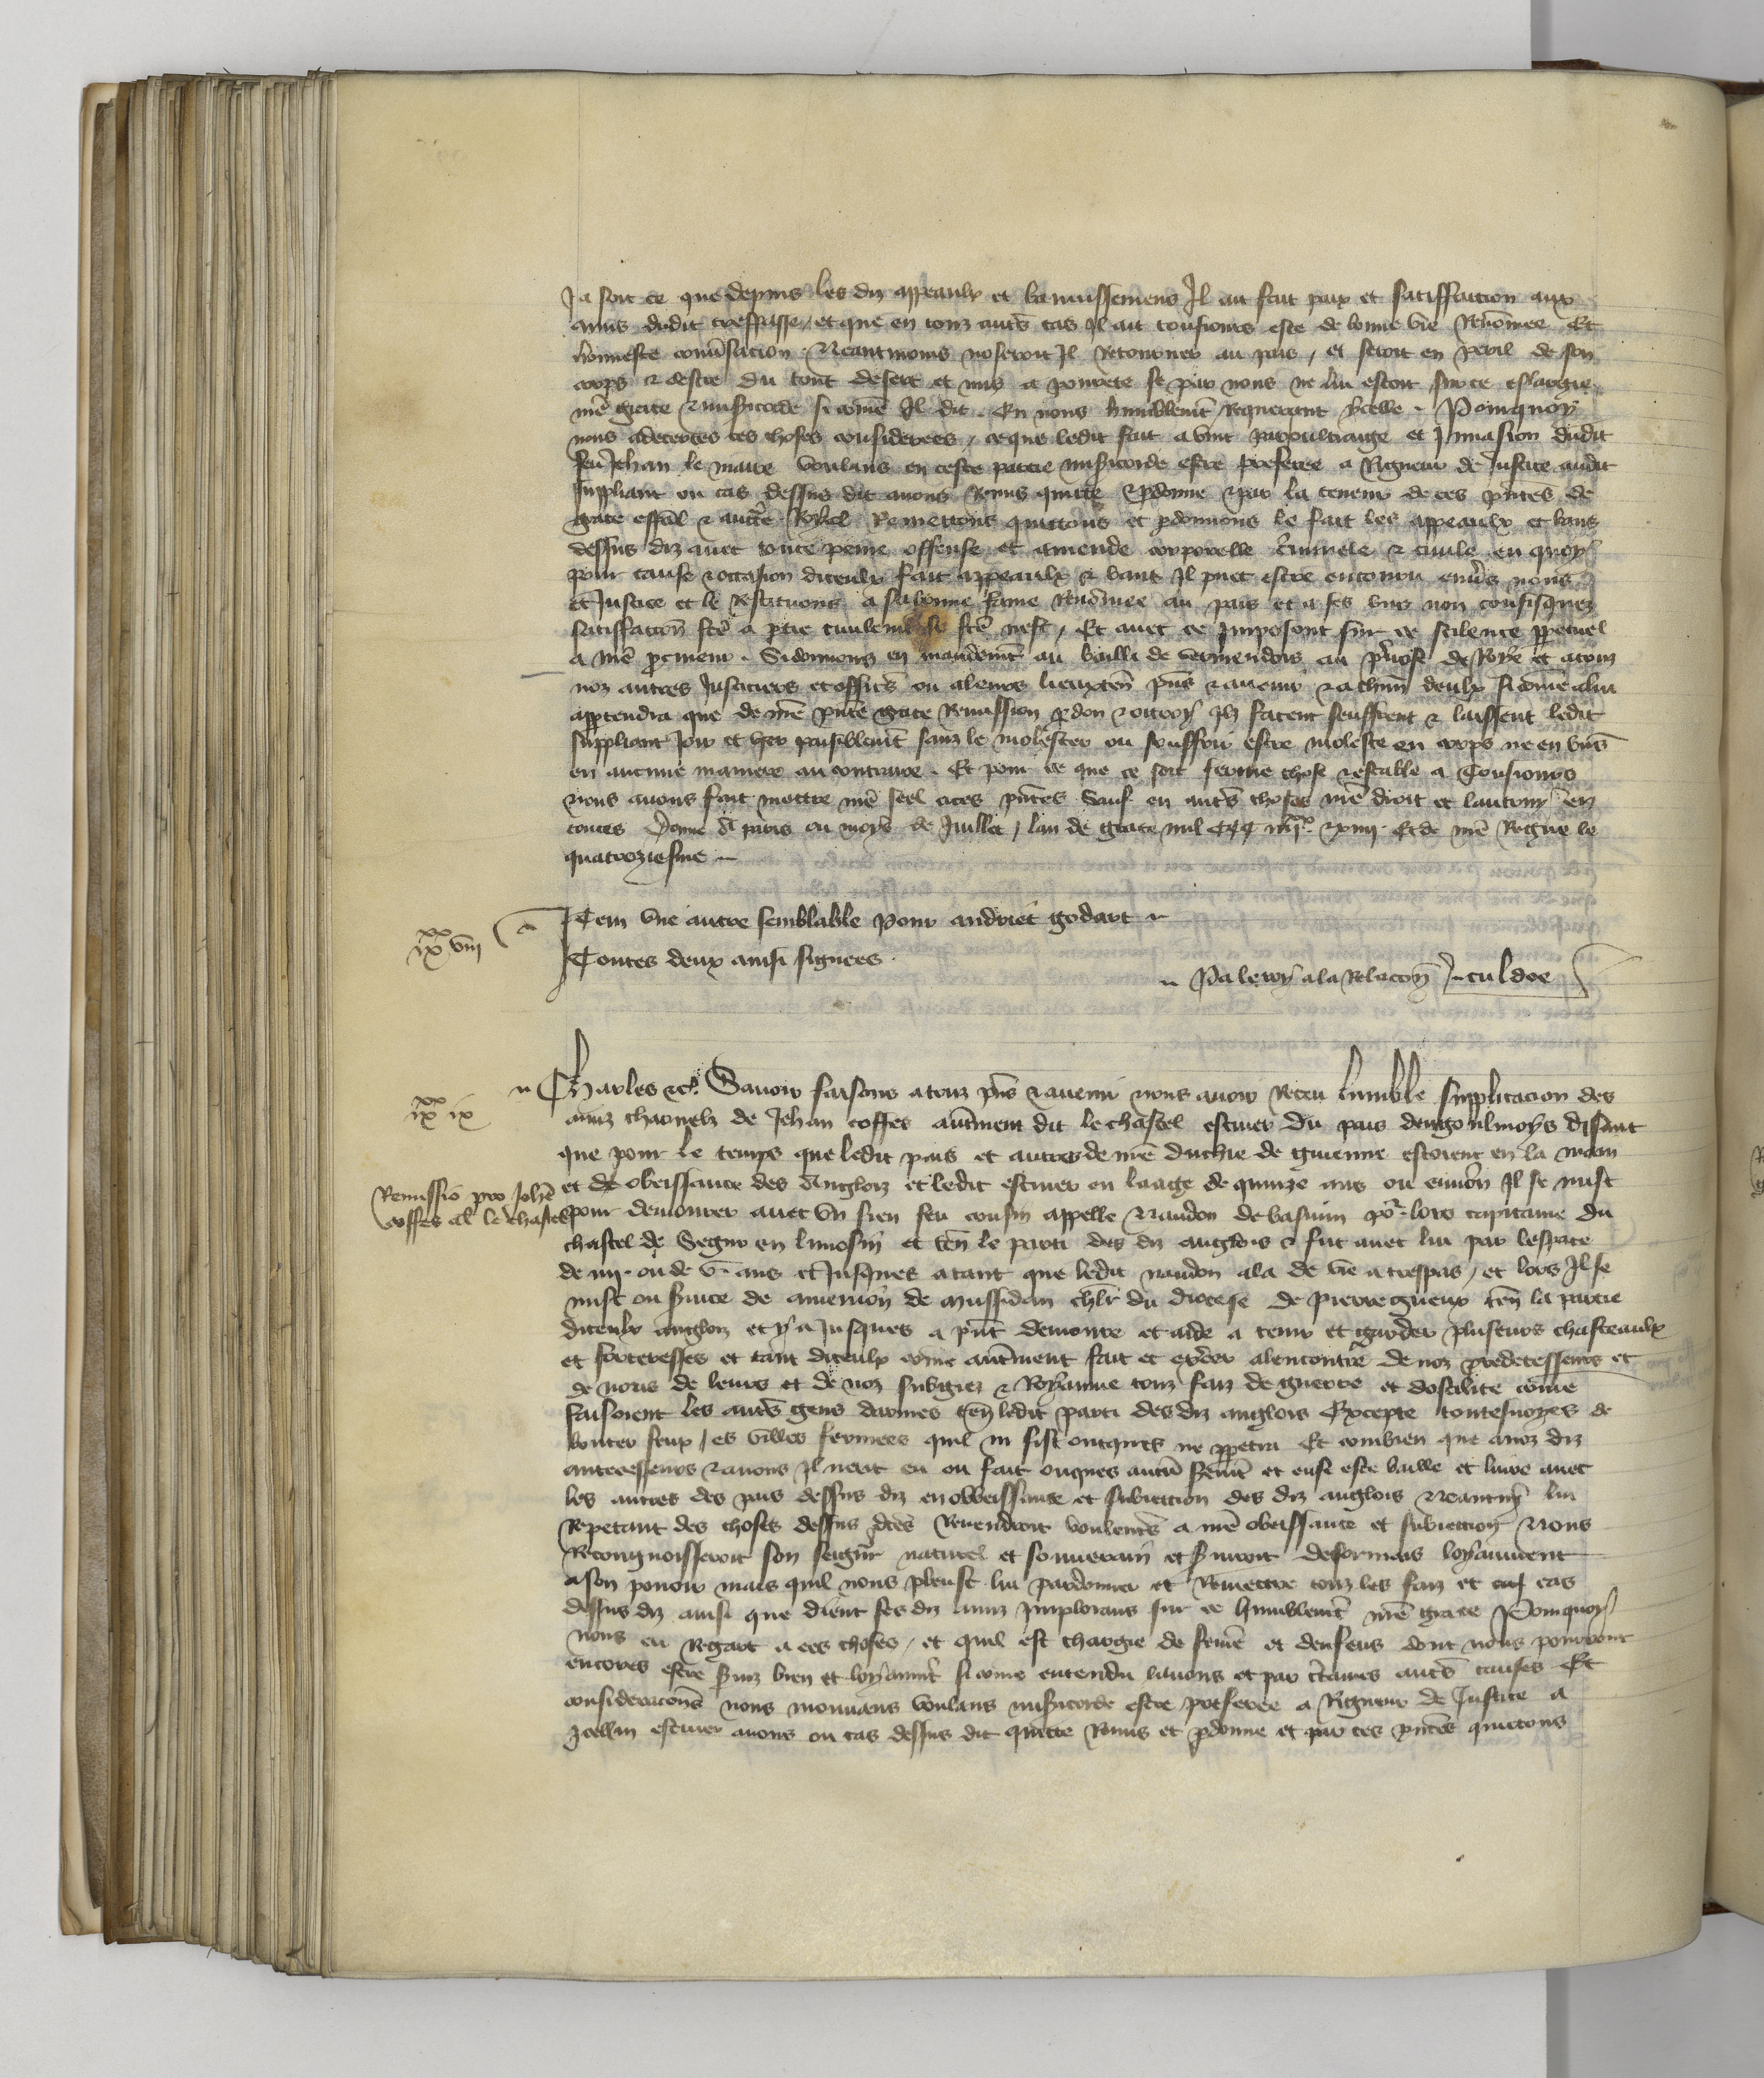 Ja soit ce que depuis les diz appeaulx et bannissemens Il ait fait paix et satiffaction aux
amis dudit trespasse, et que en touz autˢ cas Il ait tousiours este de bonne vie Renōmee Et
honneste conūsacion. Neantmoins noseroit Il Retourner au pais, et seroit en peril de son
corps & destre du tout desert et mis a pourete se par nous ne lui estoit sur ce eslargie
nrē grace & misͥcorde si cōme Il dit. En nous humblemt̄ Requerant ycelle. Pourquoy
nous adecertes ces choses considerees, ce que ledit fait avint par oultraige et Inuasion dudit
feu Jehan le maire voulans en ceste partie misͥcorde estre preferee a Rigueur de Justice audit
suppliant ou cas dessus dit auons Remis quitte & pdonne & par la teneur de ces pn̄tes de
grace espāl & auctē Royal Remettons quittons et pdonnons le fait les appeaulx et bans
dessus diz auec toute peine offense et amende corporelle criminele & ciuile en quoy
pour cause & occasion diceulx fait appeaulx & bans Il puet estre encouru enūs nous
et Justice et le Restituons a sa bonne fame Renōmee au pais et a ses biens non confisquez
satisfaccōn fcē a ptie ciuilemt̄ se fcē nest, Et auec ce Imposons sur ce scilence ppetuel
a nrē pcureur. Si donnons en mandemt̄ au bailli de vermendois au p̄uost de Roye et a touz
noz autres Justiciers et officˢ ou a leurs lieuxten̄ pn̄s & auenir & a chūn deulx si cōme a lui
apptendra que de nrē pn̄te grace Remission pdon & ottroy Ilz facent seuffrent & laissent ledit
suppliant Joir et user paisiblemt̄ sanz le molester ou souffrir estre moleste en corps ne en biēs
en aucune maniere au contraire. Et pour ce que ce soit ferme chose & estable a Tousiours
nous auons fait mettre nrē seel a ces pn̄tes Sauf en autˢ choses nrē droit et lautruy en
toutes Donne A paris ou moys de Juillet, lan de grace mil CCC iiijˣˣ & xiiij. Et de nrē Regne le
quatorziesme
ixˣˣ viij
Item vne autre semblable Pour andriet godart
Toutes deux ainsi signees.
Par le roy a la Relacōn culdoe
ixˣˣ ix
Charles &c. Sauoir faisons a touz pn̄s & auenir nous auoir Receu lumble supplicacion des
amiz charnelz de Jehan coffer aut̄ment dit le chastel escuier du pais dengoulmoys disant
que pour le temps que ledit pais et autres de nrē duchie de guienne estoient en la main
Remissio pro Joh̄e
coffer al̄ le chastel
et obeissance des Angloiz et ledit escuier en laage de quinze ans ou enuiron Il se mist
pour demourer auec vn sien feu cousin appelle Naudon de basuin po lors capitaine du
chastel de Segur en limosin et ten̄ le parti des diz anglois & fut auec lui par lespace
de iiij. ou de v. ans et Jusques a tant que ledit naudon ala de vie a trespas, et lors Il se
mist ou suice de amenion de mussidan chl̄r du diocese de pierregueux ten̄ la partie
diceulx angloiz et y a Jusques a pn̄t demoure et aide a tenir et garder plusieurs chasteaulx
et forteresses et tant diceulx cōme aut̄ment fait et exēcer alencontre de noz predecesseurs et
de nous de leurs et de noz subgiez & Royaume touz faiz de guerre et dostilite cōme
faisoient les autˢ gens darmes ten̄ ledit parti des diz anglois Excepte toutesuoyes de
bouter feux, es villes fermees quil ni fist oncques ne ppetra Et combien que a noz diz
antecesseurs & a nous Il nait eu ou fait onques aucū sēmt̄ et eust este baille et liure auec
les autres des pais dessus diz en obbeissance et subiection des diz anglois Neantmˢ lui
Repetant des choses dessus dc̄es Reuendroit voulentˢ a nrē obeissance et subiection Nous
Recongnoisseroit son seignr̄ naturel et souuerain et suiroit desormais loyaument
a son pouoir mais quil nous pleust lui pardonner et Remettre touz les faiz et cas
dessus diz ainsi que dient ses diz amiz Implorans sur ce humblemt̄ nrē grace Pourquoy
nous eu Regart a ces choses, et quil est chargie de femē et denfens dont nous pourront
encores estre suiz bien et loyaumt̄ si cōme entendu lauons et par c̄taines autˢ causes Et
consideracōns nous mouuans voulans misͥcorde estre preferee a Rigueur de Justice a
Icellui escuier auons ou cas dessus dit quitte Remis et pdonne et par ces pn̄tes quictons